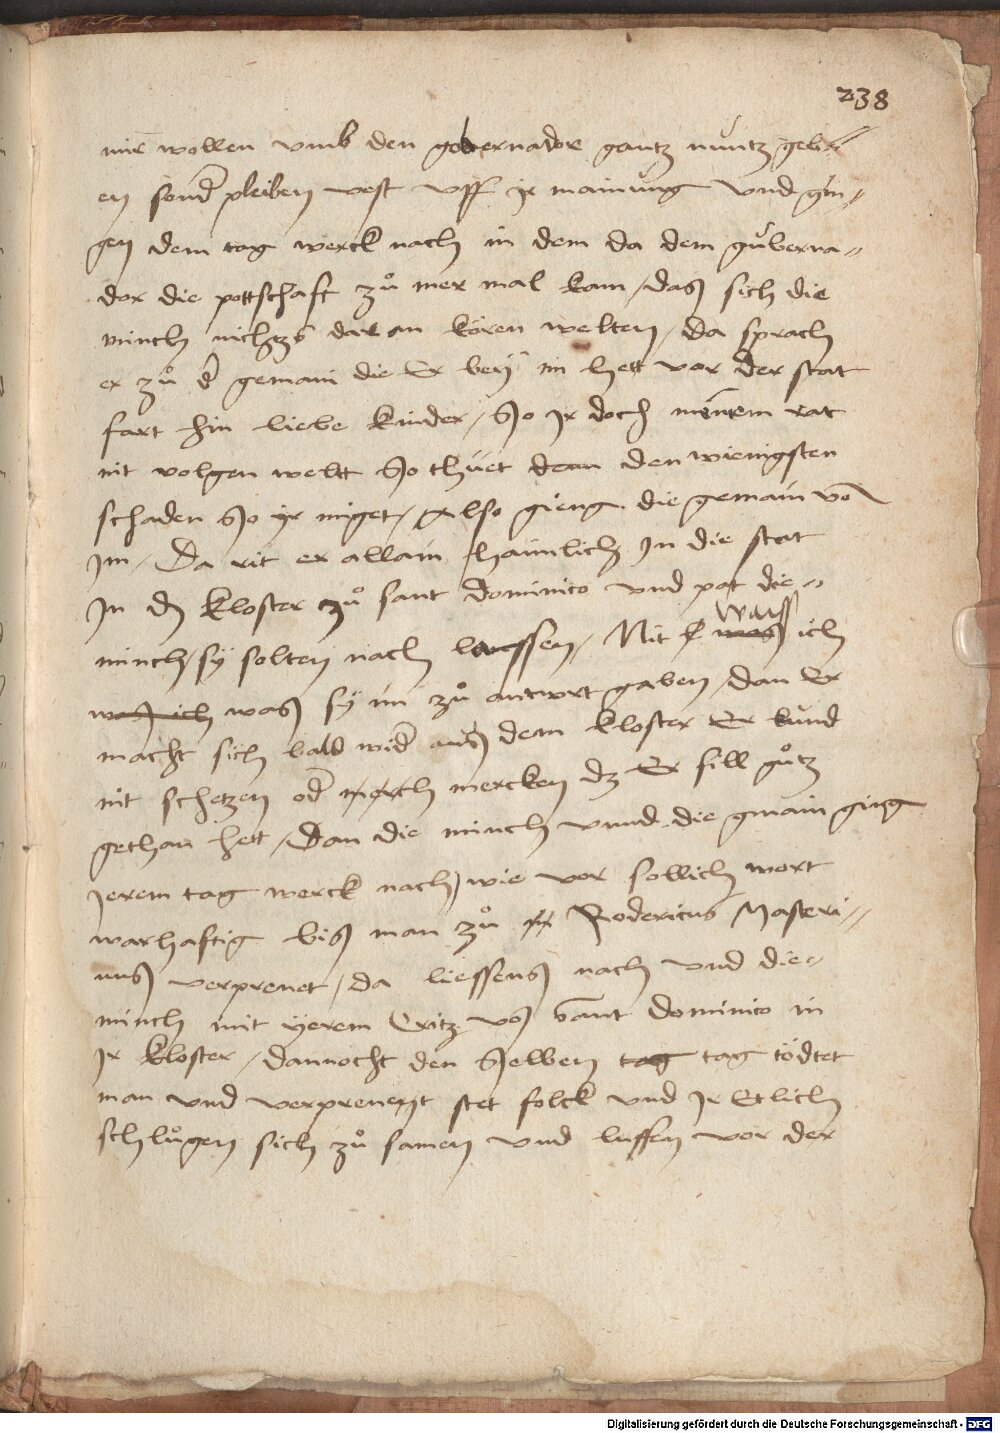 238
mir wollen vmb den gobernador gantz nuntz geb//
en sond pleiben vest vff ir mainung vnd gin//
gen dem tag werck nach in dem da dem guberna//
dor die pottschaft zů mer mal kam / das sich die
minch nichtzs dar an kören welten / da sprach
er zů d gemain die Er bey im hett vor der stat
fart hin liebe kinder / So Ir doch meinem rat
nit volgen weltt So thuet den wienigsten
schaden So yr miget / Also gieng die gemain vō
Im / Da rit er allain haimlich In die stat
In dz kloster zů sant dominico vnd pat die //
minch / sy solten nach lassen / Nit wais ich
was ich was sy im zů antwrt gaben / dan Er
macht sich bald wid aus dem kloster Er kund
nit schetzen od merch mercken dz Er fill gůtz
gethan hett / Dan die minch vnnd die gmain ging
Jerem tag werck nach / wie vor sollich wort
warhaftig bis man zů Rodericus Masteri //
nus verprenet / da liessens nach vnd die //
minch mit yerem Critz vō Sant dominico in
Ir kloster / dannocht den Selben tag tag tödtet
man vnd verprenent stet folck vnd Ir Etlich
schlůgen sich zů samen vnd luffen vor der
Digitalisierung gefördert durch die Deutsche Forschungsgemeinschaft - DFG